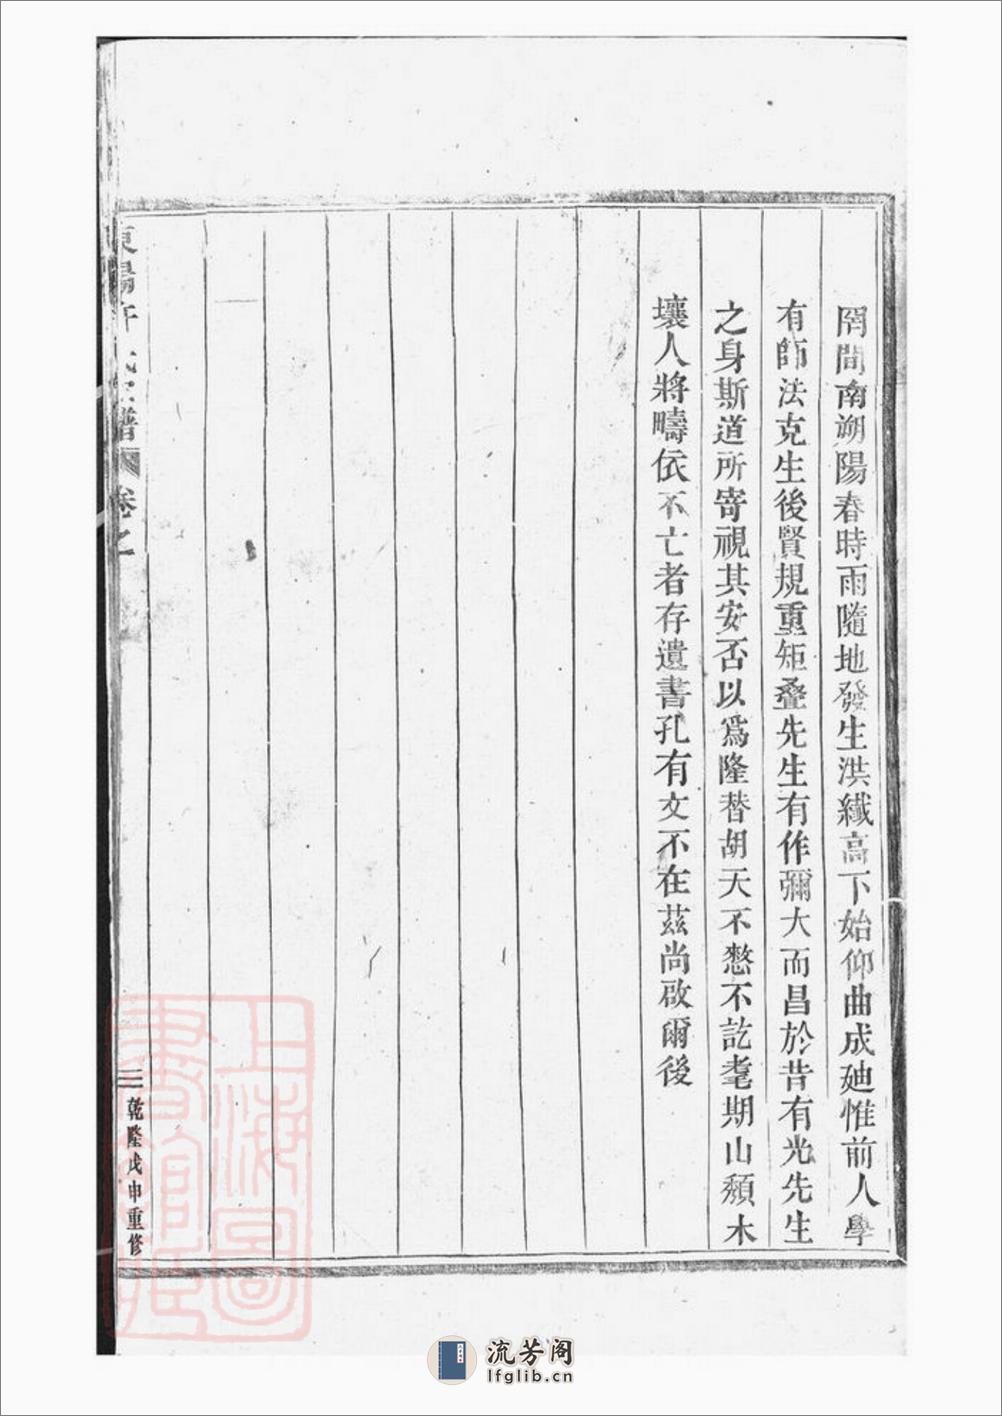 罔間南朔陽春時雨隨地發生洪纖高下始仰曲成廸惟前人學
有師法克生後賢規重矩疊先生有作彌大而昌於昔有光先生
之身斯道所寄視其安否以爲隆替胡天不憗不訖耄期山頹木
壞人將疇依不亡者存遺書孔有文不在茲尚啟爾後
東陽許氏宗譜
卷之
三
乾隆戊申重修
上海圖書館藏
流芳阁
lfglib.cn